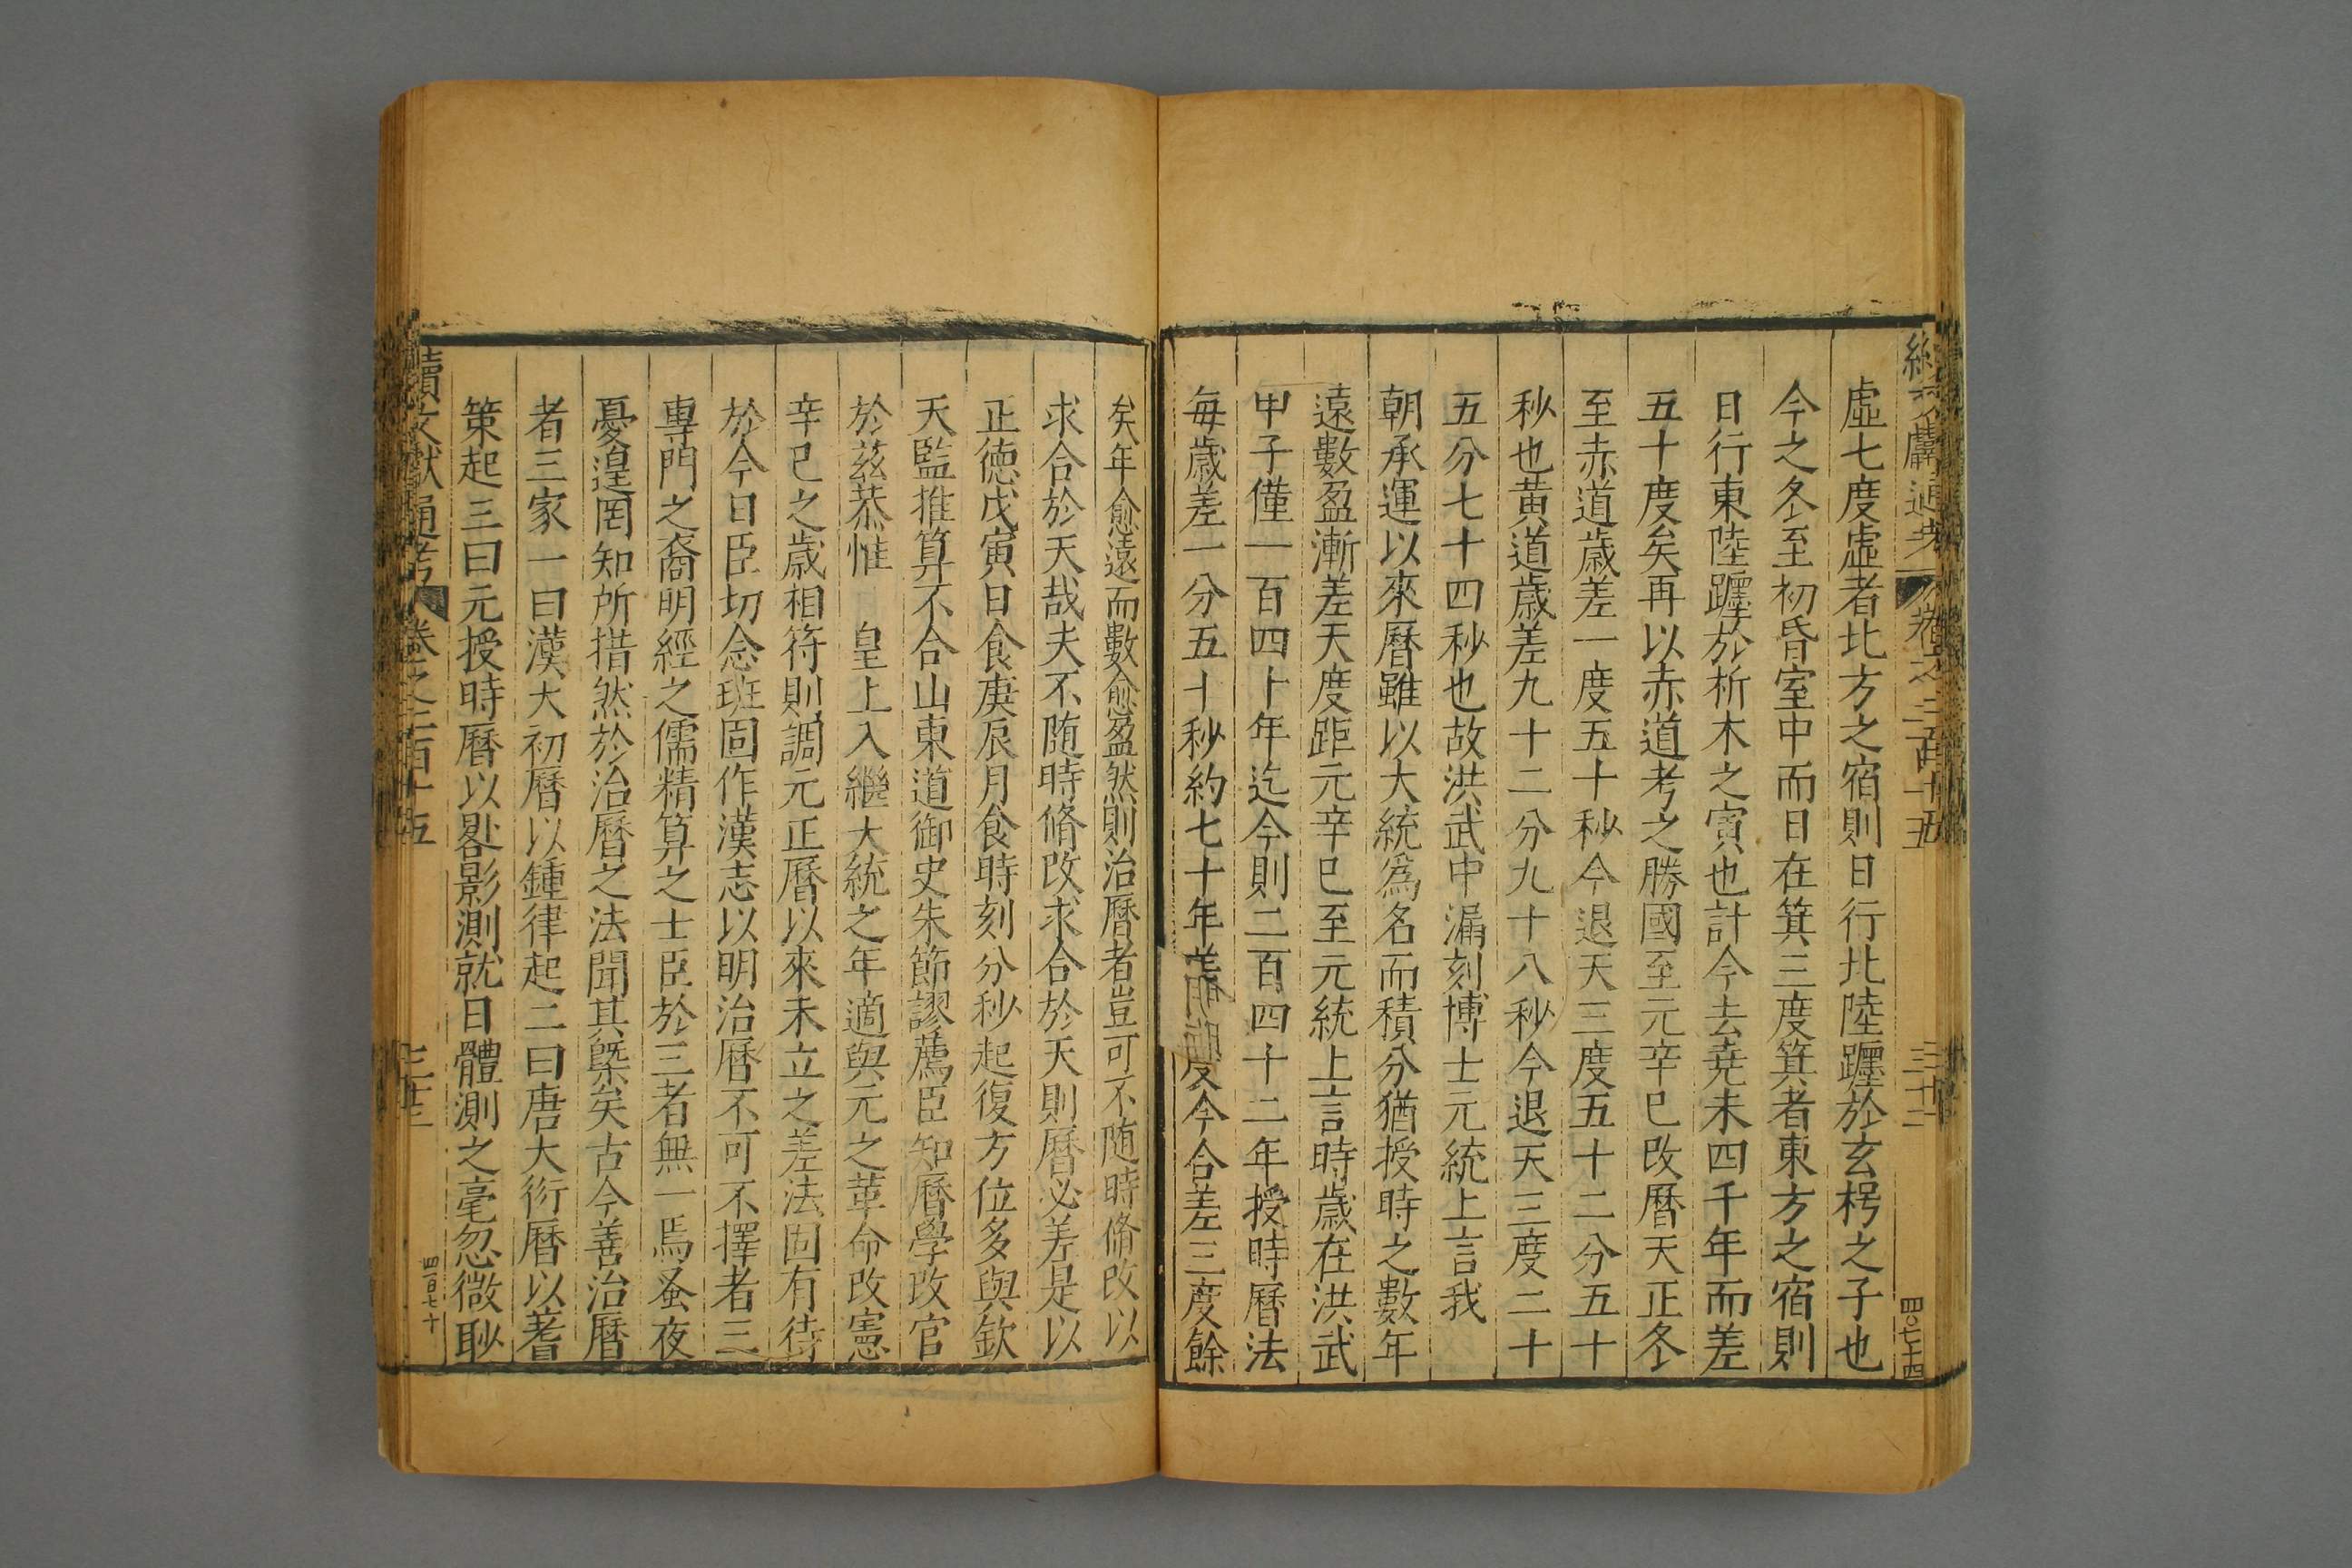 續文獻通考 卷之二百十五 三十二
虛七度虛者北方之宿則日行北陸躔於玄枵之子也
今之冬至初昏室中而日在箕三度箕者東方之宿則
日行東陸躔於析木之寅也計今去堯未四千年而差
五十度矣再以赤道考之勝國至元辛巳改曆天正冬
至赤道歲差一度五十秒今退天三度五十二分五十
秒也黃道歲差九十二分九十八秒今退天三度二十
五分七十四秒也故洪武中漏刻博士元統上言我
朝承運以來曆雖以大統爲名而積分猶授時之數年
遠數盈漸差天度距元辛巳至元統上言時歲在洪武
甲子僅一百四十年迄今則二百四十二年授時曆法
每歲差一分五十秒約七十年差 度今合差三度餘
矣年愈遠而數愈盈然則治曆者豈可不隨時脩改以
求合於天哉夫不隨時脩改求合於天則曆必差是以
正德戊寅日食庚辰月食時刻分秒起復方位多與欽
天監推算不合山東道御史朱節謬薦臣知曆學改官
於茲恭惟 皇上入繼大統之年適與元之革命改憲
辛巳之歲相符則調元正曆以來未立之差法固有待
於今日臣切念班固作漢志以明治曆不可不擇者三
專門之裔明經之儒精算之士臣於三者無一焉蚤夜
憂遑罔知所措然於治曆之法聞其槩矣古今善治曆
者三家一曰漢大初曆以鍾律起二曰唐大衍曆以蓍
策起三曰元授時曆以晷影測就日體測之毫忽微眇
續文獻通考 卷之二百十五 三十三
四百七十